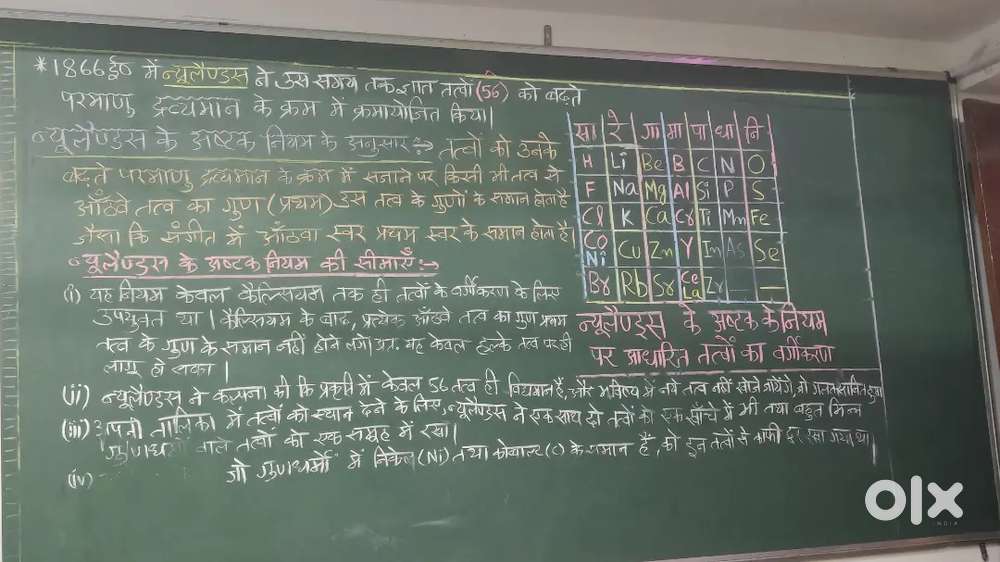 * 1866 ई० में न्यूलैण्ड्स ने उस समय तक ज्ञात तत्वों (56) को बढ़ते
परमाणु द्रव्यमान के क्रम में क्रमायोजित किया।
न्यूलैण्ड्स के अष्टक नियम के अनुसार :→ तत्वों को उनके
बढ़ते परमाणु द्रव्यमान के क्रम में सजाने पर किसी भी तत्व से
आँठवे तत्व का गुण (प्रथम) उस तत्व के गुणों के समान होता है
जैसा कि संगीत में आँठवा स्वर प्रथम स्वर के समान होता है।
न्यूलैण्ड्स के अष्टक नियम की सीमाएँ :→
(i) यह नियम केवल कैल्सियम तक ही तत्वों के वर्गीकरण के लिए
उपयुक्त था। कैल्सियम के बाद, प्रत्येक आँठवे तत्व का गुण प्रथम
तत्व के गुण के समान नहीं होने लगा यह केवल हल्के तत्व पर ही
लागू हो सका।
(ii) न्यूलैण्ड्स ने कल्पना की कि प्रकृति में केवल 56 तत्व ही विद्यमान है, और भविष्य में नये तत्व नहीं खोजे जायेंगे, जो गलत साबित हुआ
(iii) अपनी तालिका में तत्वों को स्थान देने के लिए, न्यूलैण्ड्स ने एक साथ दो तत्वों को एक खाँचे में भी तथा बहुत भिन्न
वाले तत्वों को एक समूह में रखा।
(iv) जो गुणधर्मों में निकेल (Ni) तथा कोबाल्ट के समान है, को इन तत्वों से काफी दूर रखा गया था।
सा रे गा मा पा धा नि
H Li Be B C N O
F Na Mg Al Si P S
Cl K Ca Cr Ti Mn Fe
Co Ni Cu Zn Y In As Se
Br Rb Sr Ce La Zr — —
न्यूलैण्ड्स के अष्टक के नियम
पर आधारित तत्वों का वर्गीकरण
olx
INDIA